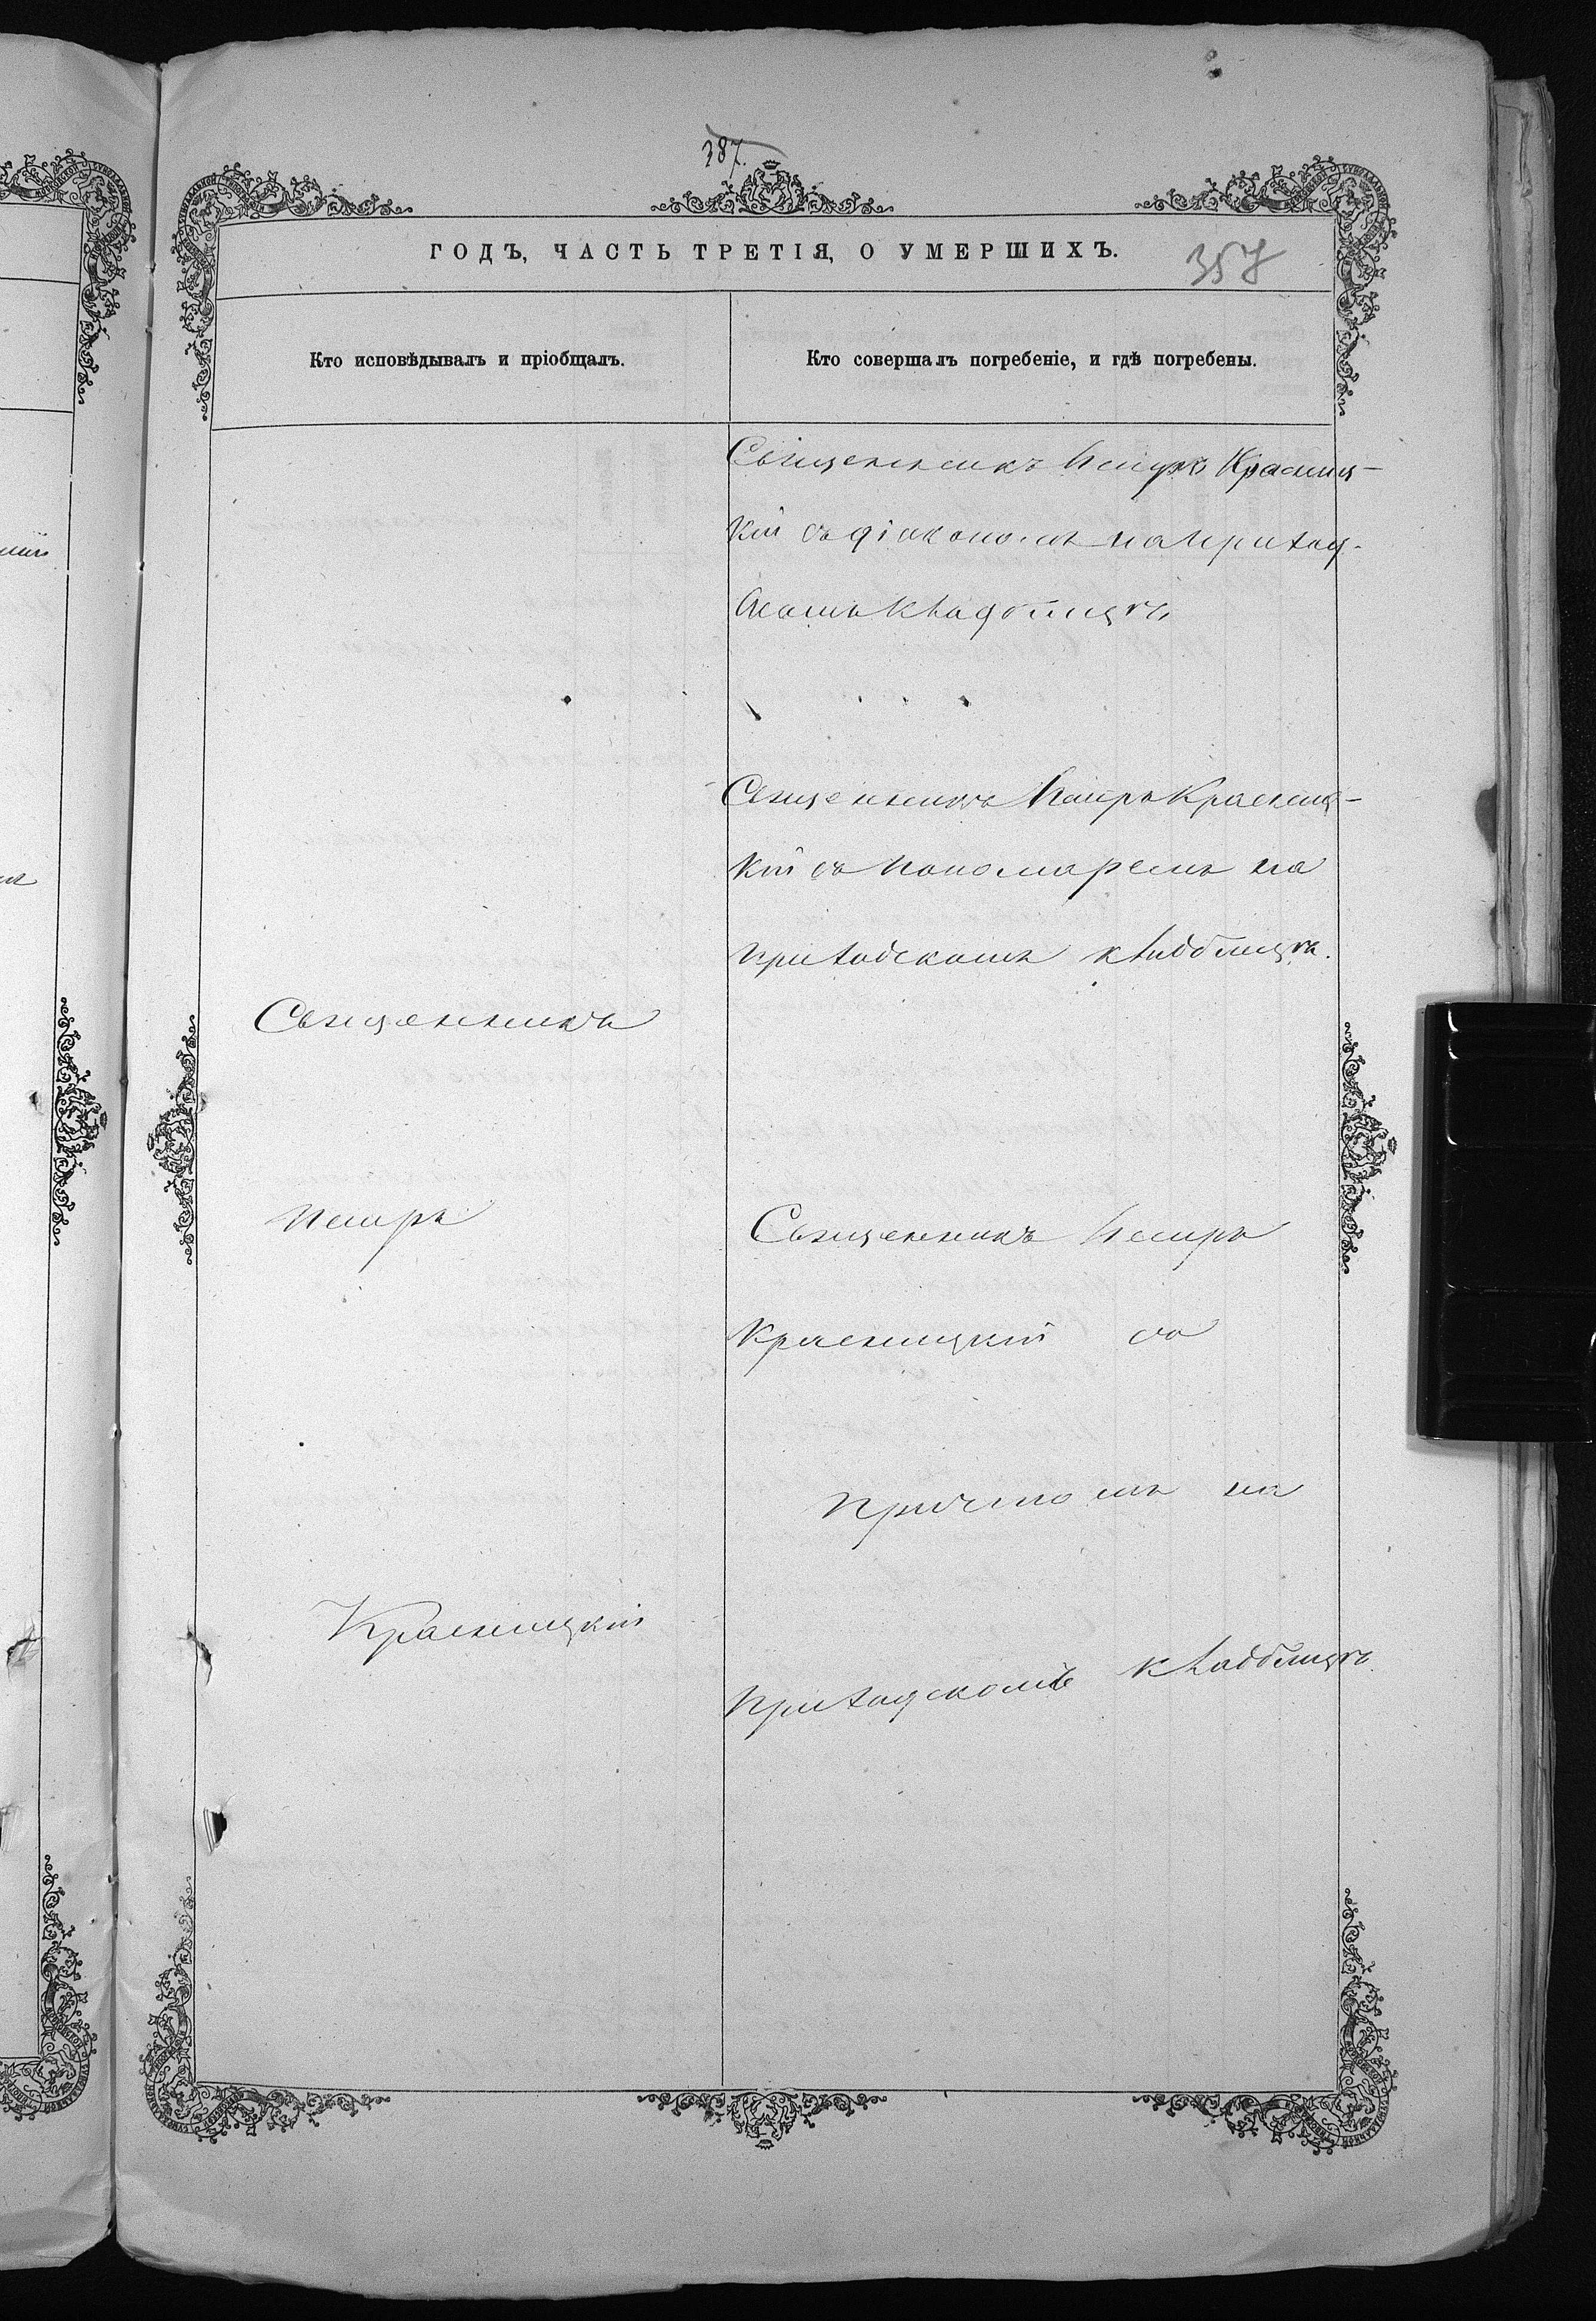 387.
ГОДЪ, ЧАСТЬ ТРЕТІЯ, О УМЕРШИХЪ.
357
Кто исповѣдывалъ и пріобщалъ.
Кто совершалъ погребеніе, и гдѣ погребены.
Священникъ Петръ Красниц-
кій съ діакономъ на приход-
скомъ кладбищѣ
Священникъ Петръ Красниц-
кій съ пономаремъ на
приходскомъ кладбищѣ.
Священникъ
Петръ
Красницкій
Священникъ Петръ
Красницкій съ
причтомъ на
приходскомъ кладбищѣ